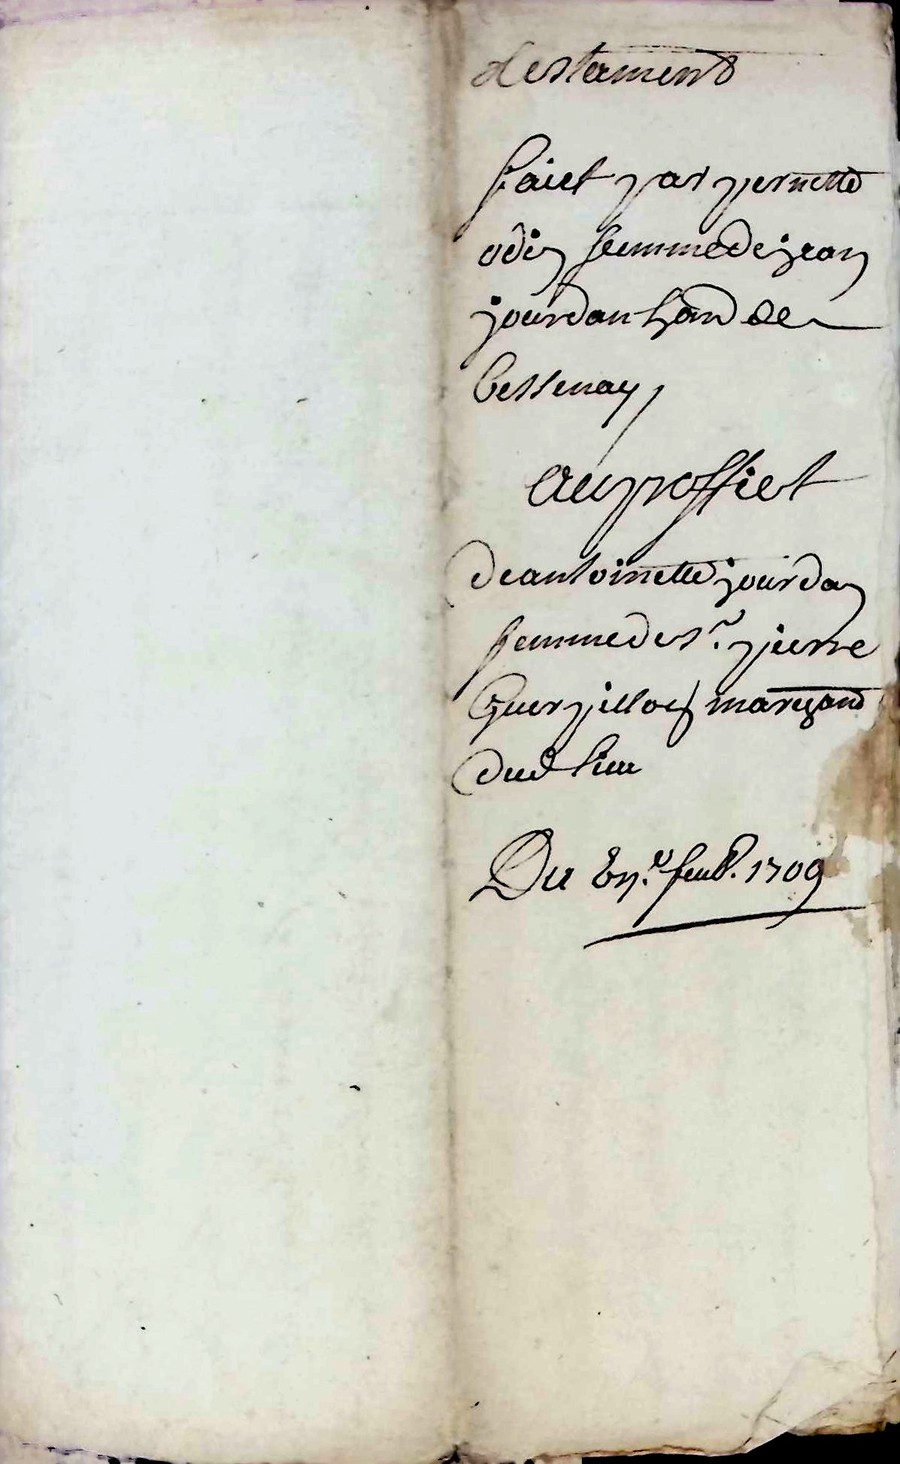 testament
faict par pernette
odin femme de jean
jourdan hand de
bessenay
au proffict
de antoinette jourdan
femme de sr. pierre
marchand
dud lieu
Du fevr. 1709